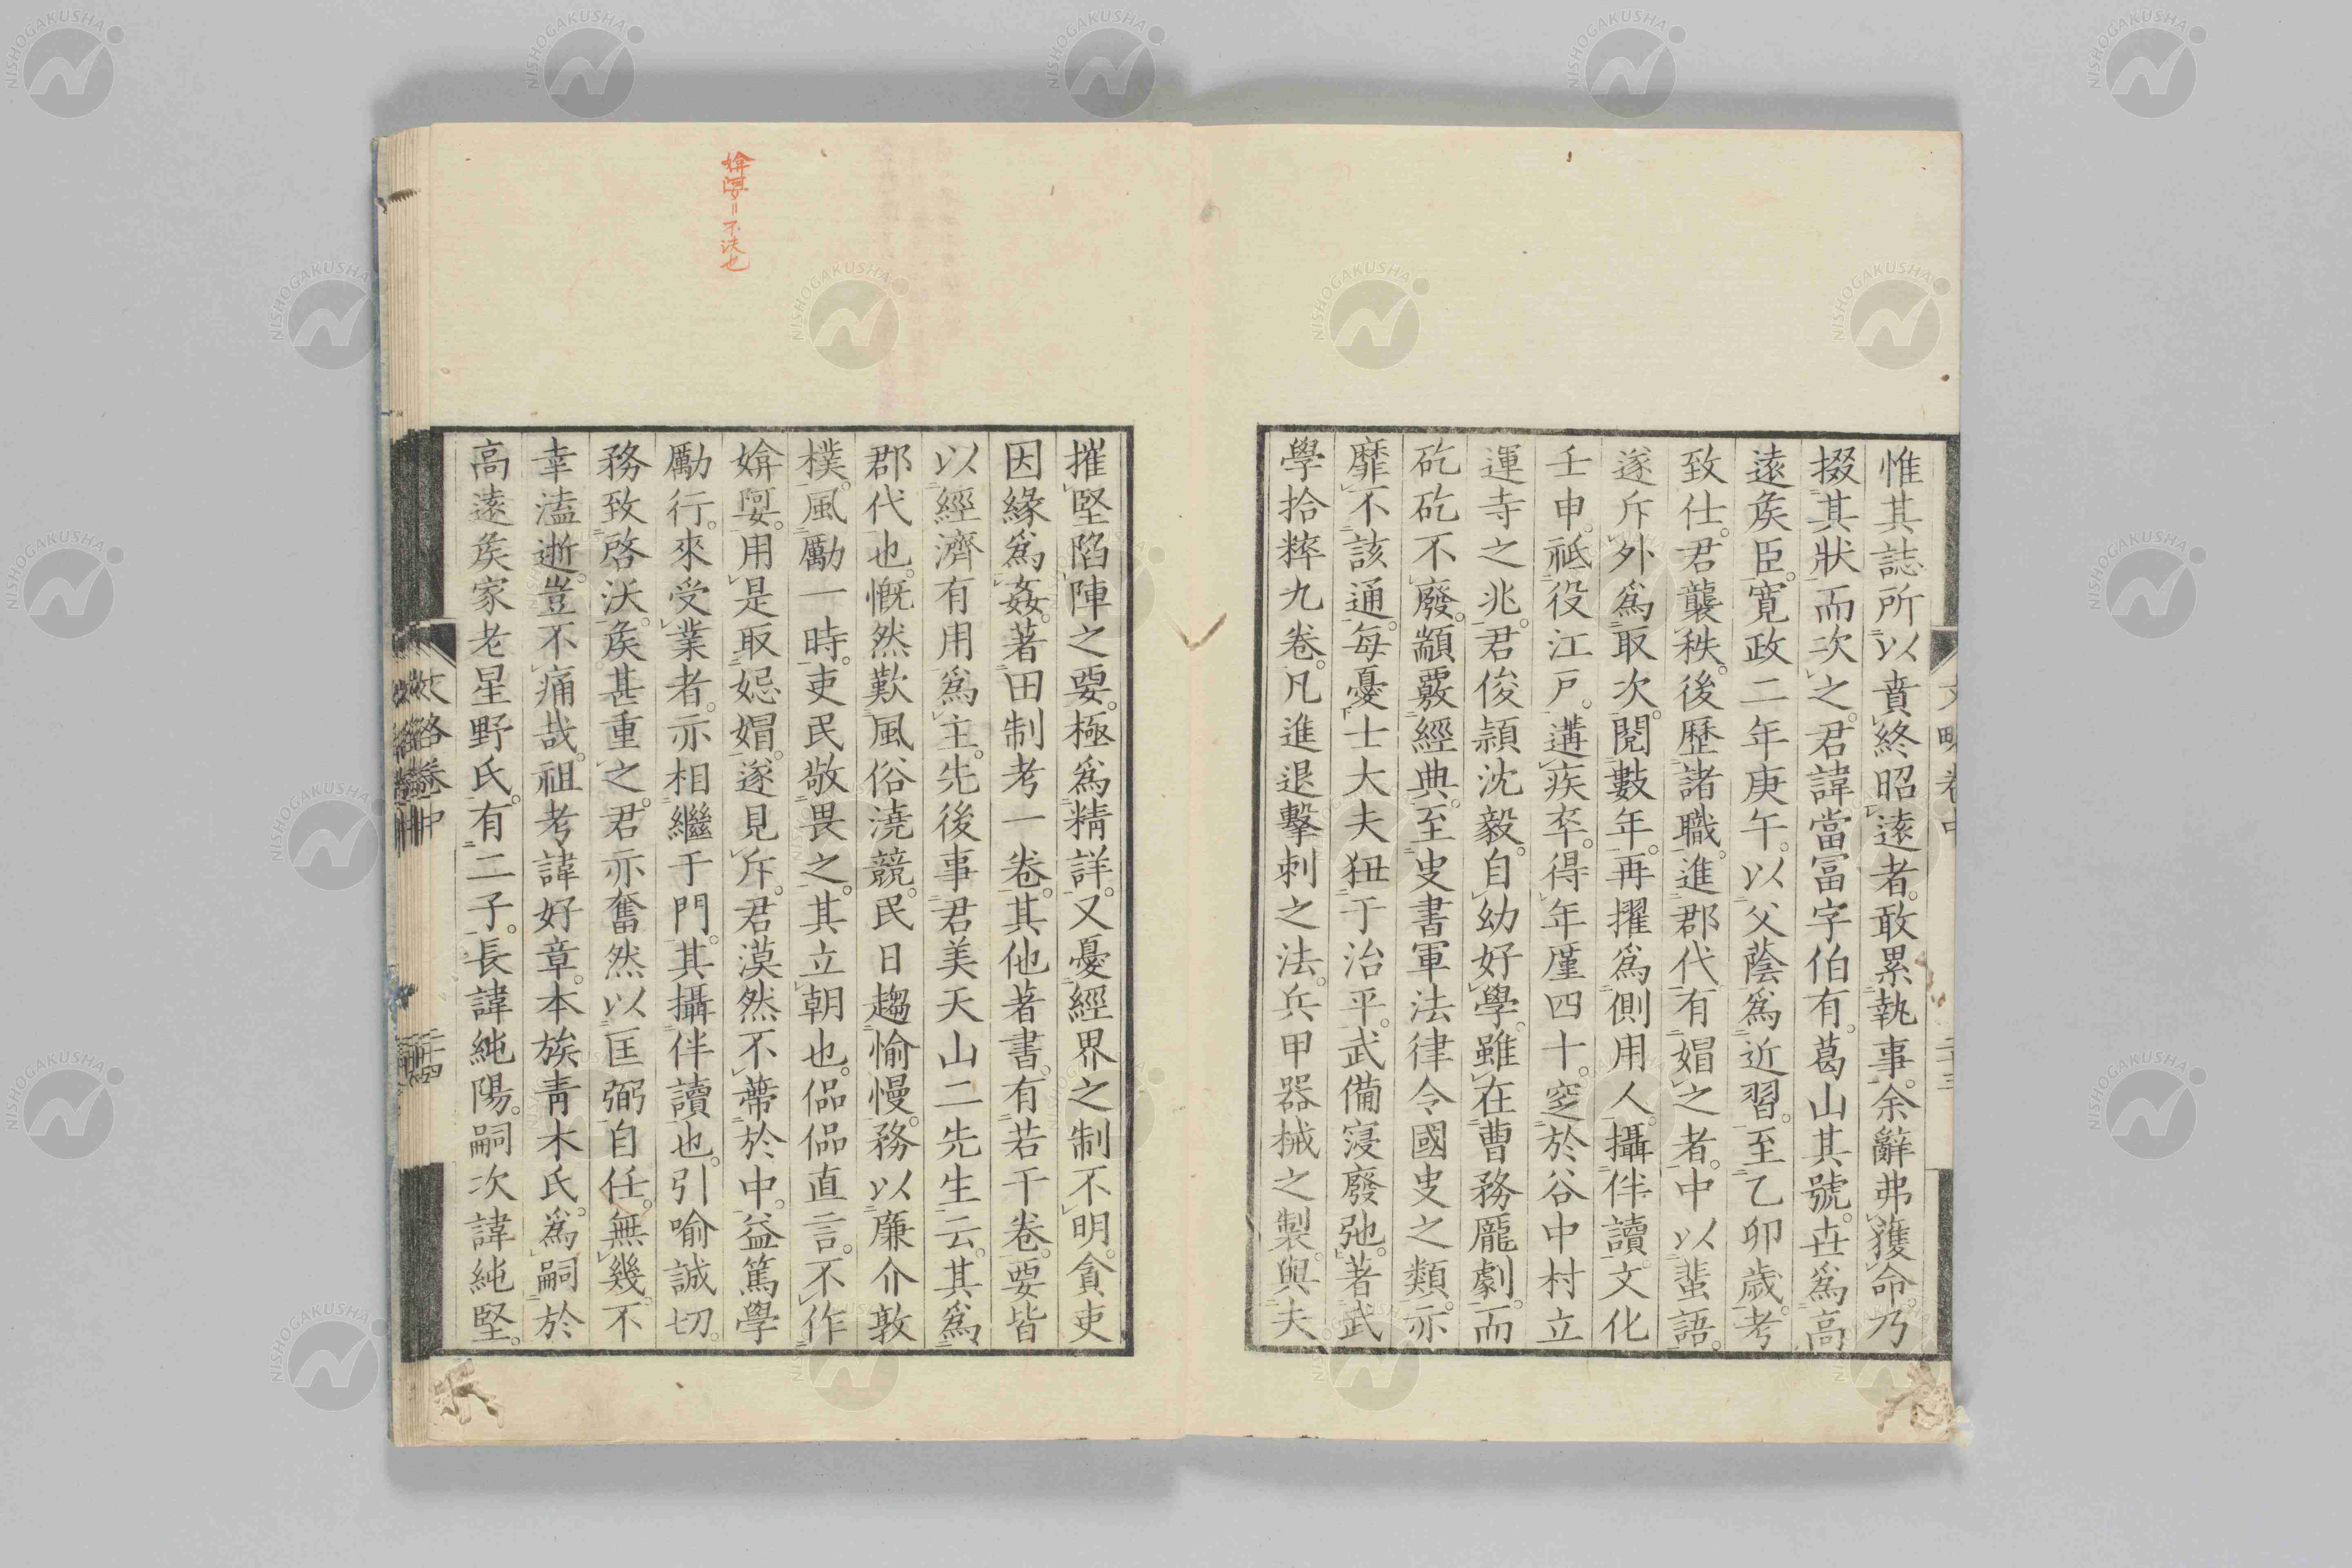 惟其誌所以賁終昭遠者。敢累執事。余辭弗獲命乃
掇其狀而次之。君諱當冨字伯有。葛山其號。世爲高
遠矦臣。寛政二年庚午。以父蔭爲近習。至乙卯歳。考
致仕。君襲秩。後歷諸職。進郡代。有媢之者。中以蜚語。
遂斥外爲取次。閲數年。再擢爲側用人。攝伴讀。文化
壬申。祗役江戸。遘疾卒。得年厪四十。窆於谷中村立
運寺之兆。君俊頴沈毅。自幼好學。雖在曹務龐劇。而
矻矻不廢。顓覈經典。至史書軍法律令國史之類。亦
靡不該通。每憂士大夫狃于治平。武備寖廢弛。著武
學拾粹九卷。凡進退擊刺之法。兵甲器械之製。與夫
摧堅陷陣之要。極爲精詳。又憂經界之制不明。貪吏
因緣爲姦。著田制考一卷。其他著書。有若干卷。要皆
以經濟有用爲主。先後事君美天山二先生云。其爲
郡代也。慨然歎風俗澆競。民日趨愉慢。務以廉介敦
樸。風勵一時。吏民敬畏之。其立朝也。偘偘直言。不作
媕婀。用是取媢。遂見斥。君漠然不蔕於中。益篤學
勵行。來受業者。亦相繼于門。其攝伴讀也。引喻誠切。
務致啓沃。矦甚重之。君亦奮然以匡弼自任。無幾。不
幸溘逝。豈不痛哉。祖考諱好章。本族靑木氏。爲嗣於
高遠矦家老星野氏。有二子。長諱純陽。嗣次諱純堅。
文略卷中
二十三
文略卷中
二十四
媕婀=不决也
NISHOGAKUSHA